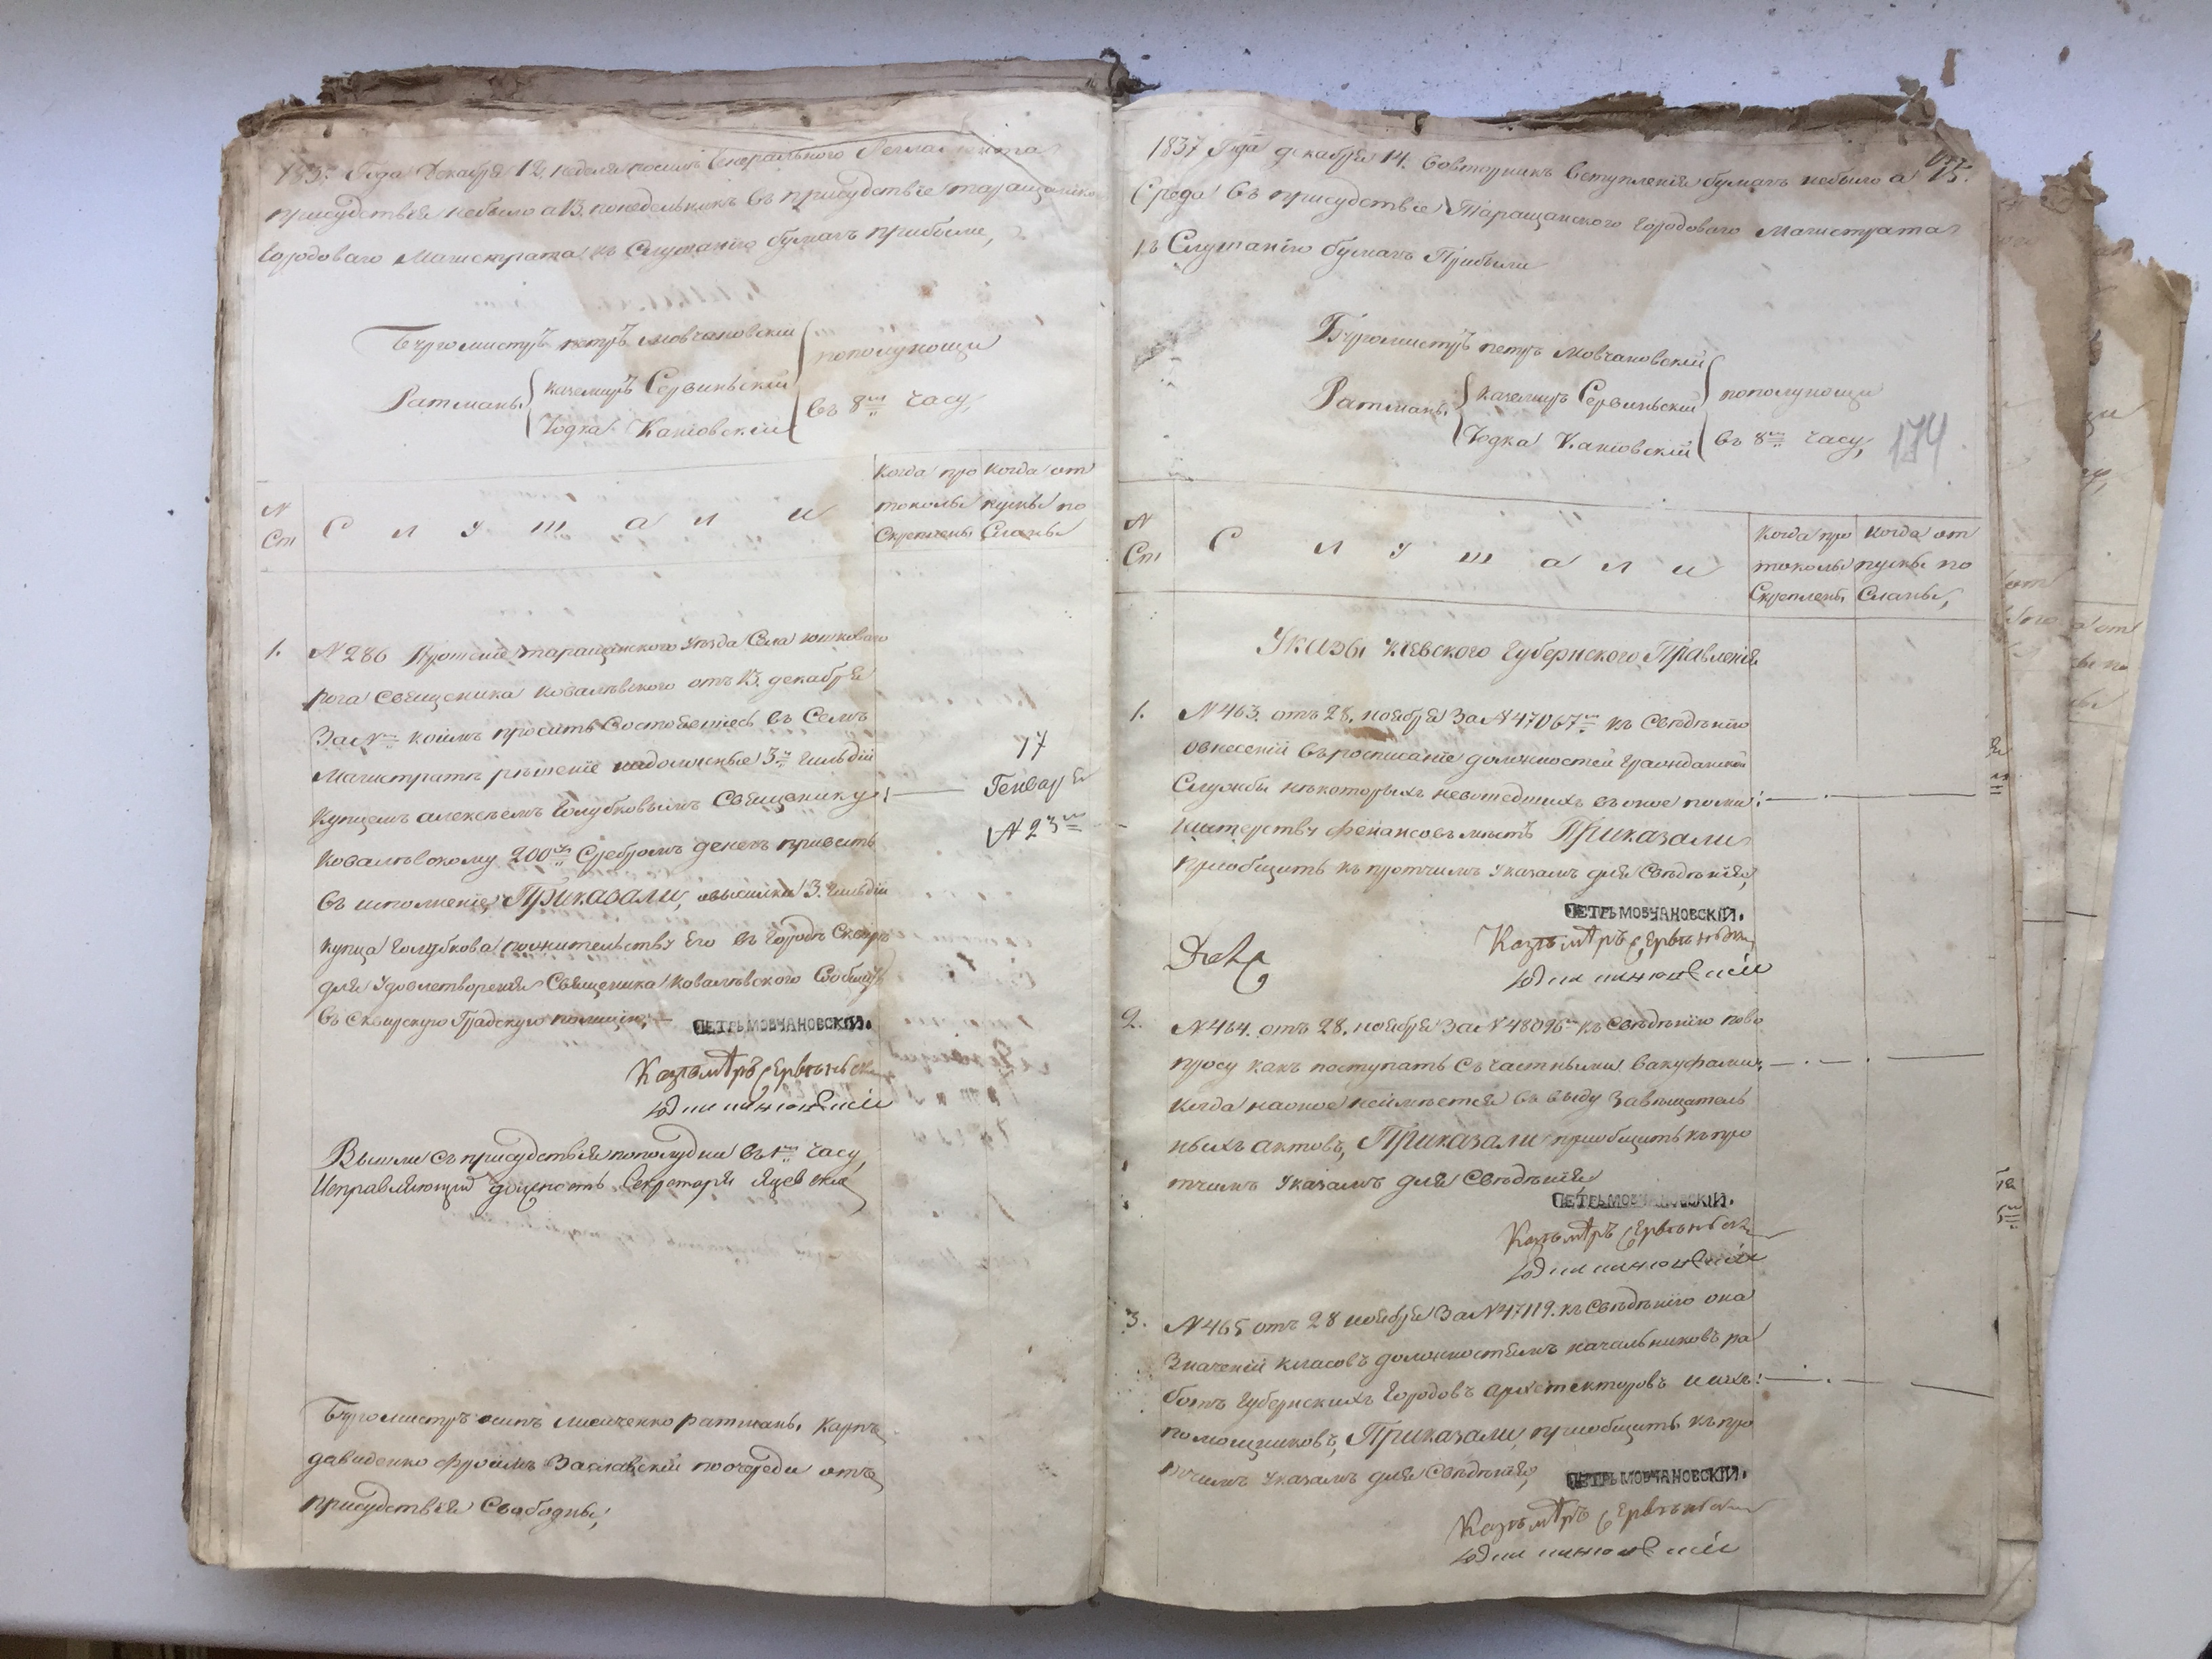 1837. Года Декабря 12, неделя посилѣ Генерального Регламента
присудствія небыло а 13. понедельникъ въ присудствіе таращанско
Городоваго Магистрата къ Слушанію бумагъ прибыли,
Бургомистръ петръ мовчановскій
пополуночи
Ратманы
качемиръ Сервиньскій
Іодка Каніовскій
въ 8м часу,
N Ст
С л у ш а л и
Когда про токолы Скреплены
Когда от пуски по Сланы
1. N 286 Прошеніе таращанского уезда Села юшковаго
рога Священика Ковалѣвского отъ 13. декабря
За N коимъ проситъ Состоявшеесь въ Семъ
Магистратѣ рѣшеніе надолжные 3й Гильдіи
купцемъ алексѣемъ Голубковымъ Священику
Ковалѣвскому 200 Сребромъ денегъ привесть
въ исполненіе, Приказали, овысылки 3. Гильдіи
купца Голубкова пожительству Его въ Городѣ Сквирѣ
для Удовлетворенія Священика Ковалѣвского Сообщить
въ Сквирскую Градскую полицію;
17
Генваря
N 23
ПЕТРЪ МОВЧАНОВСКІЙ.
Вышли съ присудствія пополудни въ 1м часу,
Исправляющій должность Секретаря Яцевскій
Бургомистръ осипъ лисиченко ратманы Карпъ
давиденко Фроимъ Заславскій по очереди отъ
присудствія Свободны;
1837 Года декабря 14. вовторникъ вступленія бумагъ небыло а 15.
Среда въ присудствіе Таращанского Городоваго Магистрата
къ Слушанію бумагъ Прибыли
Бургомистръ петръ Мовчановскій
Ратманы
Качемиръ Сервиньскій
Іодка Каніовскій
пополуночи
въ 8м часу,
174
N Ст
С л у ш а л и
Когда про токолы Скреплены
Когда от пуски по Сланы,
Указы Кіевского Губернского Правленія
1. N 463. отъ 28. ноября За N 47067м къ Свѣдѣнію
овнесеній въросписаніе должностей Гражданской
Службы нѣкоторыхъ невошедшихъ въ оное поми:
нистерству финансовъ мѣстъ Приказали
пріобщить къ протчимъ Указамъ для Свѣдѣнія,
ПЕТРЪ МОВЧАНОВСКІЙ.
2. N 464. отъ 28. ноября За N 48096м къ Свѣдѣнію пово
просу какъ поступать съ частными вакуфами,
когда наоное неимѣется въ виду Завѣщатель
ныхъ актовъ, Приказали пріобщить къ про
тчимъ Указамъ для Свѣдѣнія
ПЕТРЪ МОВЧАНОВСКІЙ.
3. N 465 отъ 28 ноября За N 47119. къ Свѣдѣнію она
Значеній класовъ должностямъ начальниковъ ра
ботъ Губернскихъ Городовъ архѣтекторовъ и ихъ:
помощниковъ, Приказали, пріобщить къ про
тчимъ Указамъ для Свѣдѣнія,
ПЕТРЪ МОВЧАНОВСКІЙ.